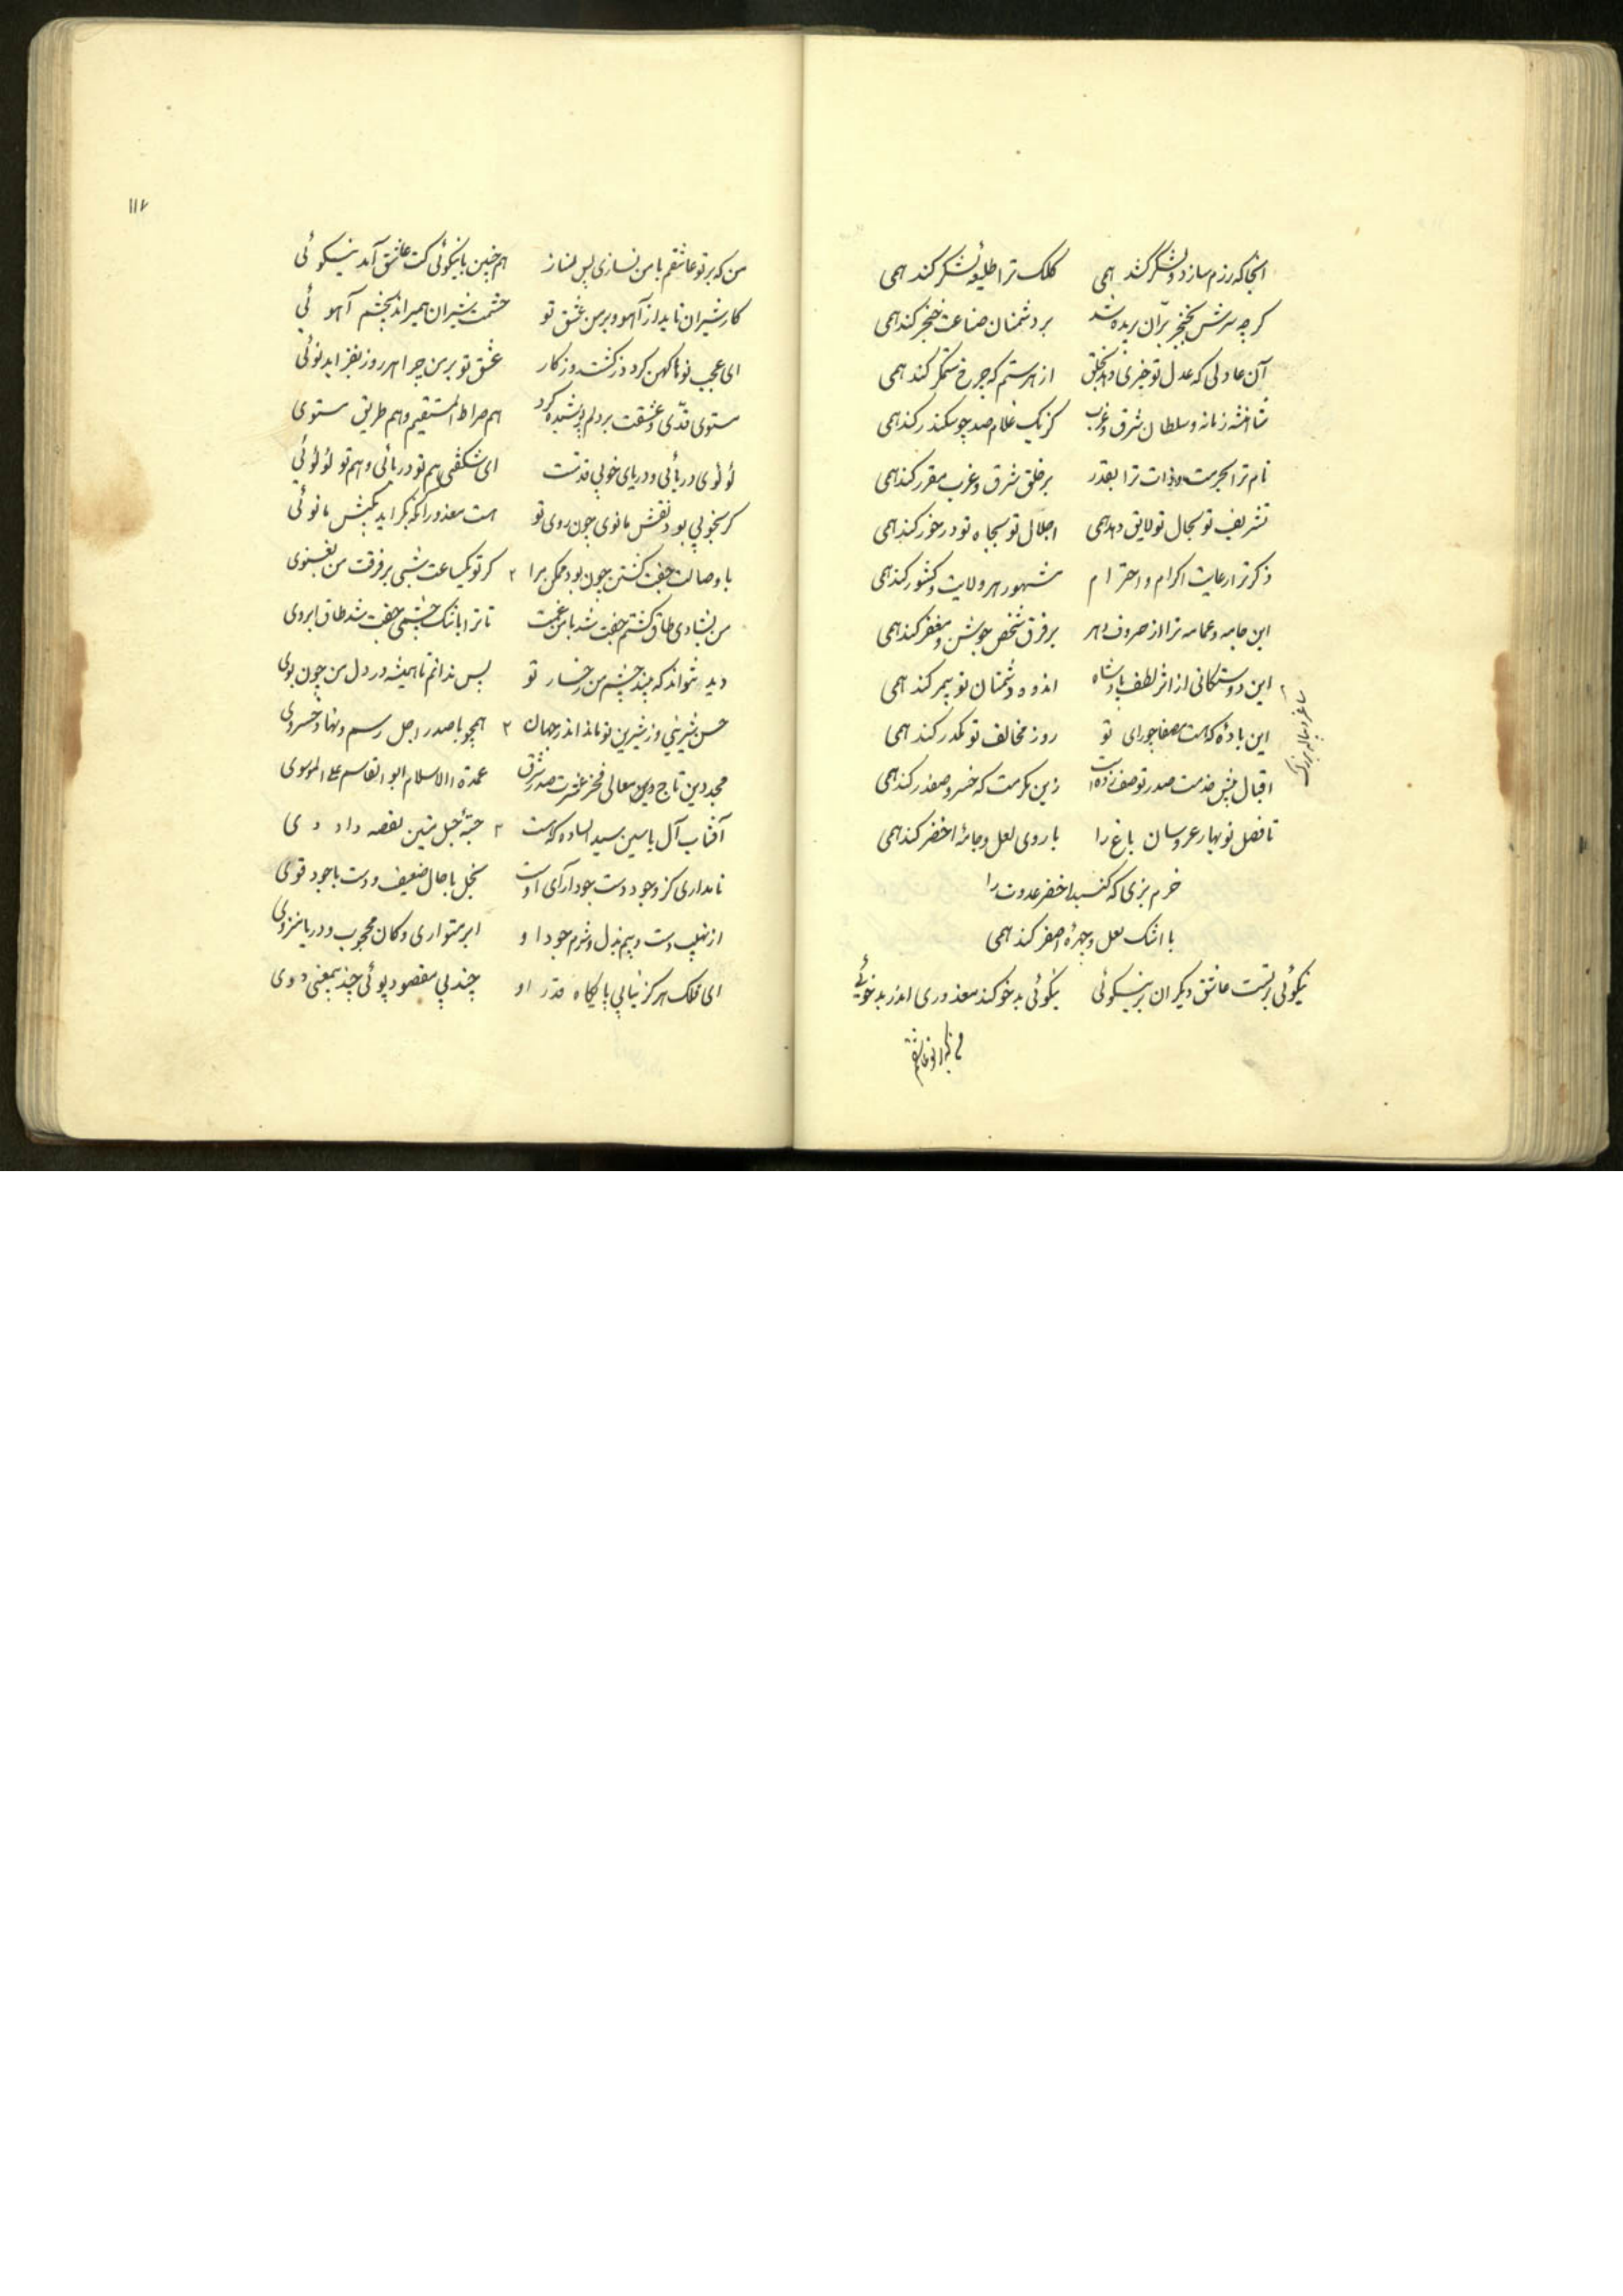 انجا که رزم سازد و لشکر کند همی کلک ترا طلیعهٔ لشکر کند همی
کرچه سرش بخنجر برّان بریده شد بر دشمنان صناعت خنجر کند همی
آن عادلی که عدل تو خبری دهد بخلق از هر ستم که چرخ ستمکر کند همی
شاهنشه زمانه و سلطان شرق و غرب کز یک غلام صد چو سکندر کند همی
نام ترا بحرمت و ذات ترا بقدر بر خلق شرق و غرب مقرر کند همی
تشریف تو بحال تو لایق دهد همی اجلال تو بجاه تو در خور کند همی
ذکر ترا رعایت اکرام و احترام مشهور هر ولایت و کشور کند همی
این جامه و عمامه ترا از صروف دهر بر فرق شخص جوشن و مغفر کند همی
این دوستکانی از اثر لطف پادشاه اندوه دشمنان تو بیمر کند همی
ساغر و پیاله بزرک
این بادهٔ که هست مصفا چو رای تو روز مخالف تو مکدر کند همی
اقبال پیش خدمت صدر تو صف زده است زین مکرمت که خسرو صفدر کند همی
تا فصل نوبهار عروسان باغ را با روی لعل و جامهٔ اخضر کند همی
خرم بزی که کنبد اخضر عدوت را
با اشک لعل و چهرهٔ اصفر کند همی
نیکوئی بر تست عاشق دیکران بر نیکوئی نیکوئی بد خو کند معذوری اندر بد خوئی
من که بر تو عاشقم
۱۱۷
من که بر تو عاشقم با من نسازی پس مناز هم چنین با نیکوئی کت عاشق آمد نیکوئی
کار شیران ناید از آهو و بر من عشق تو حشمت شیران همیراند بچشم آهوئی
ای عجب نوها کهن کردد ز کشت روزکار عشق تو بر من چرا هر روز بفزاید نوئی
مستوی قدّی و عشقت بر دلم پوشیده کرد هم صراط المستقیم و هم طریق مستوی
لؤلؤی دریائی و دریای خوبی قدتست ای شکفتی هم تو دریائی و هم تو لؤلؤئی
کر بخوبی بود نقش مانوی چون روی تو هست معذور آنکه بکراید بکیش مانوئی
با وصالت جفت کشتن چون بود ممکن مرا کر تو یکساعت شبی بر فرقت من نغنوی
من بشادی طاق کشتم جفت شد با من غمت تا ترا با شک چشمی جفت شد طاق ابروی
دید نتواند که بیند چشم من رخسار تو پس ندانم تا همیشه در دل من چون بوی
حسن شیرینی و ز شیرین تو ماند اندر جهان همچو با صدر اجل رسم و نهاد خسروی
مجد دین تاج معالی فخر عترت صدر شرق عمدة الاسلام ابو القاسم علی الموسوی
آفتاب آل یاسین سید الساده که هست جبهٔ حبل متین لفصه داودی
نامداری کز وجود دست جود آرای اوست بخل با حال ضعیف و دست با جود قوی
از نهیب دست و بیم بذل و شرم جود او ابر متواری و کان محجوب و دریا منزوی
ای فلک هرکز نیابی پایکاه قدر او چند بی مقصود پوئی چند بیمعنی دوی